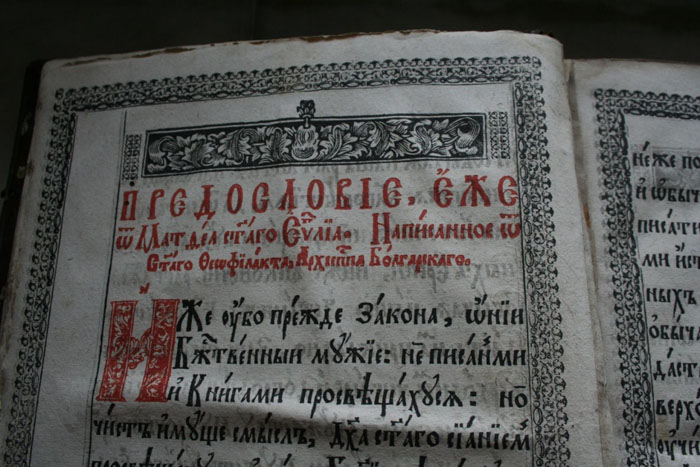 ПРЕДОСЛОВІЕ, Е́ЖЕ
ѿ Матѳеа ст҃аго Еѵ҃лїа. Написанное ѿ
Ст҃аго Ѳеѡфѷлакта, Архїеп҃па Болгарскаго.
Иже оубо прежде Закона, ѡнїи
Бж҃твенныи мꙋжїе: не писанми
и Книгами просвѣщахуся: но
чистъ имꙋще смыслъ, Дх҃а ст҃аго сїанїем
неже по
и обыч
писати
ми ист
ныхъ
обыча
даст
верх